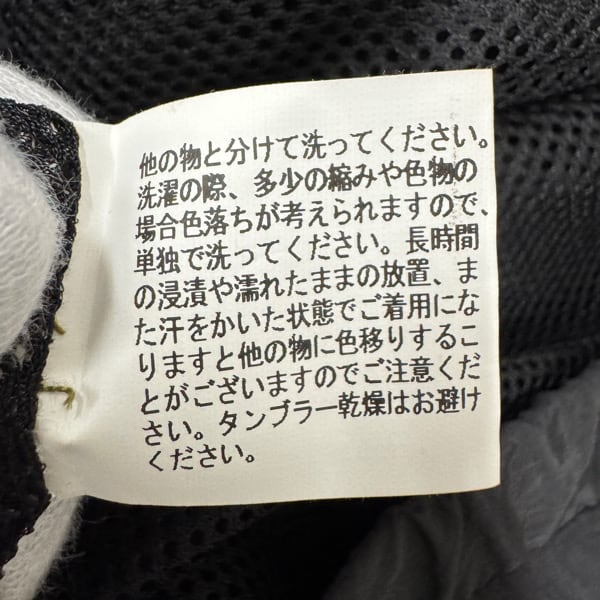 他の物と分けて洗ってください。
洗濯の際、多少の縮みや色物の
場合色落ちが考えられますので、
単独で洗ってください。長時間
の浸漬や濡れたままの放置、ま
た汗をかいた状態でご着用にな
りますと他の物に色移りするこ
とがございますのでご注意くだ
さい。タンブラー乾燥はお避け
ください。